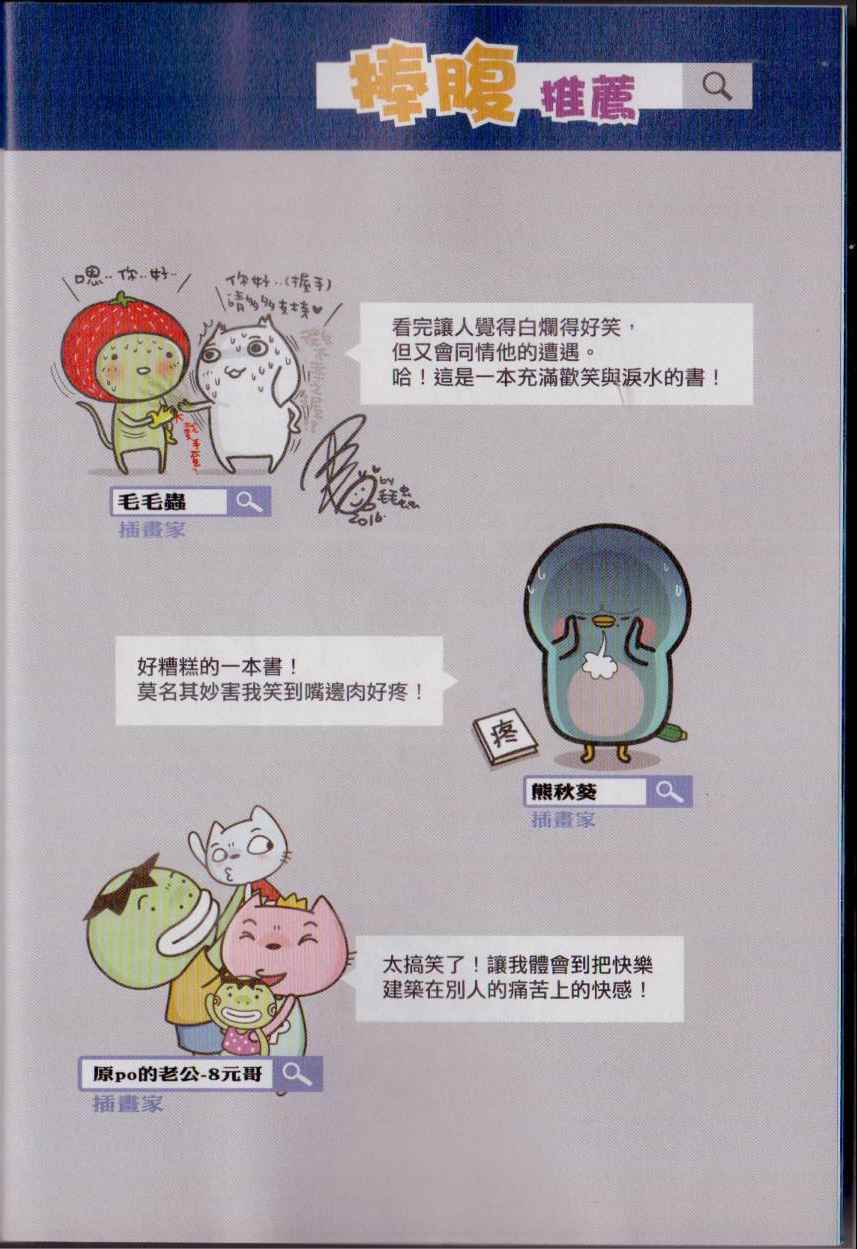 捧腹推薦
嗯..你..好..
你好..(握手)
請多多支持♥
看完讓人覺得白爛得好笑，
但又會同情他的遭遇。
哈！這是一本充滿歡笑與淚水的書！
by
毛毛虫
2016.
毛毛蟲
插畫家
好糟糕的一本書！
莫名其妙害我笑到嘴邊肉好疼！
疼
熊秋葵
插畫家
太搞笑了！讓我體會到把快樂
建築在別人的痛苦上的快感！
原po的老公-8元哥
插畫家